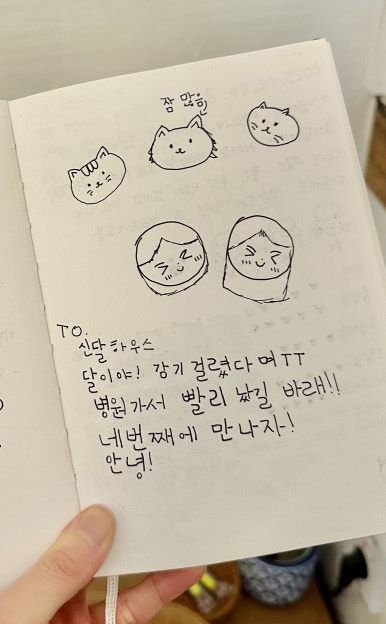 잠 많은
TO.
신달하우스
달이야! 감기 걸렸다며TT
병원가서 빨리 났길 바래!!
네번째에 만나자!
안녕!